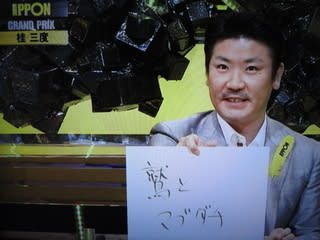 IPPON
GRAND PRIX
桂 三度
IPPON
鷲と
マブダチ